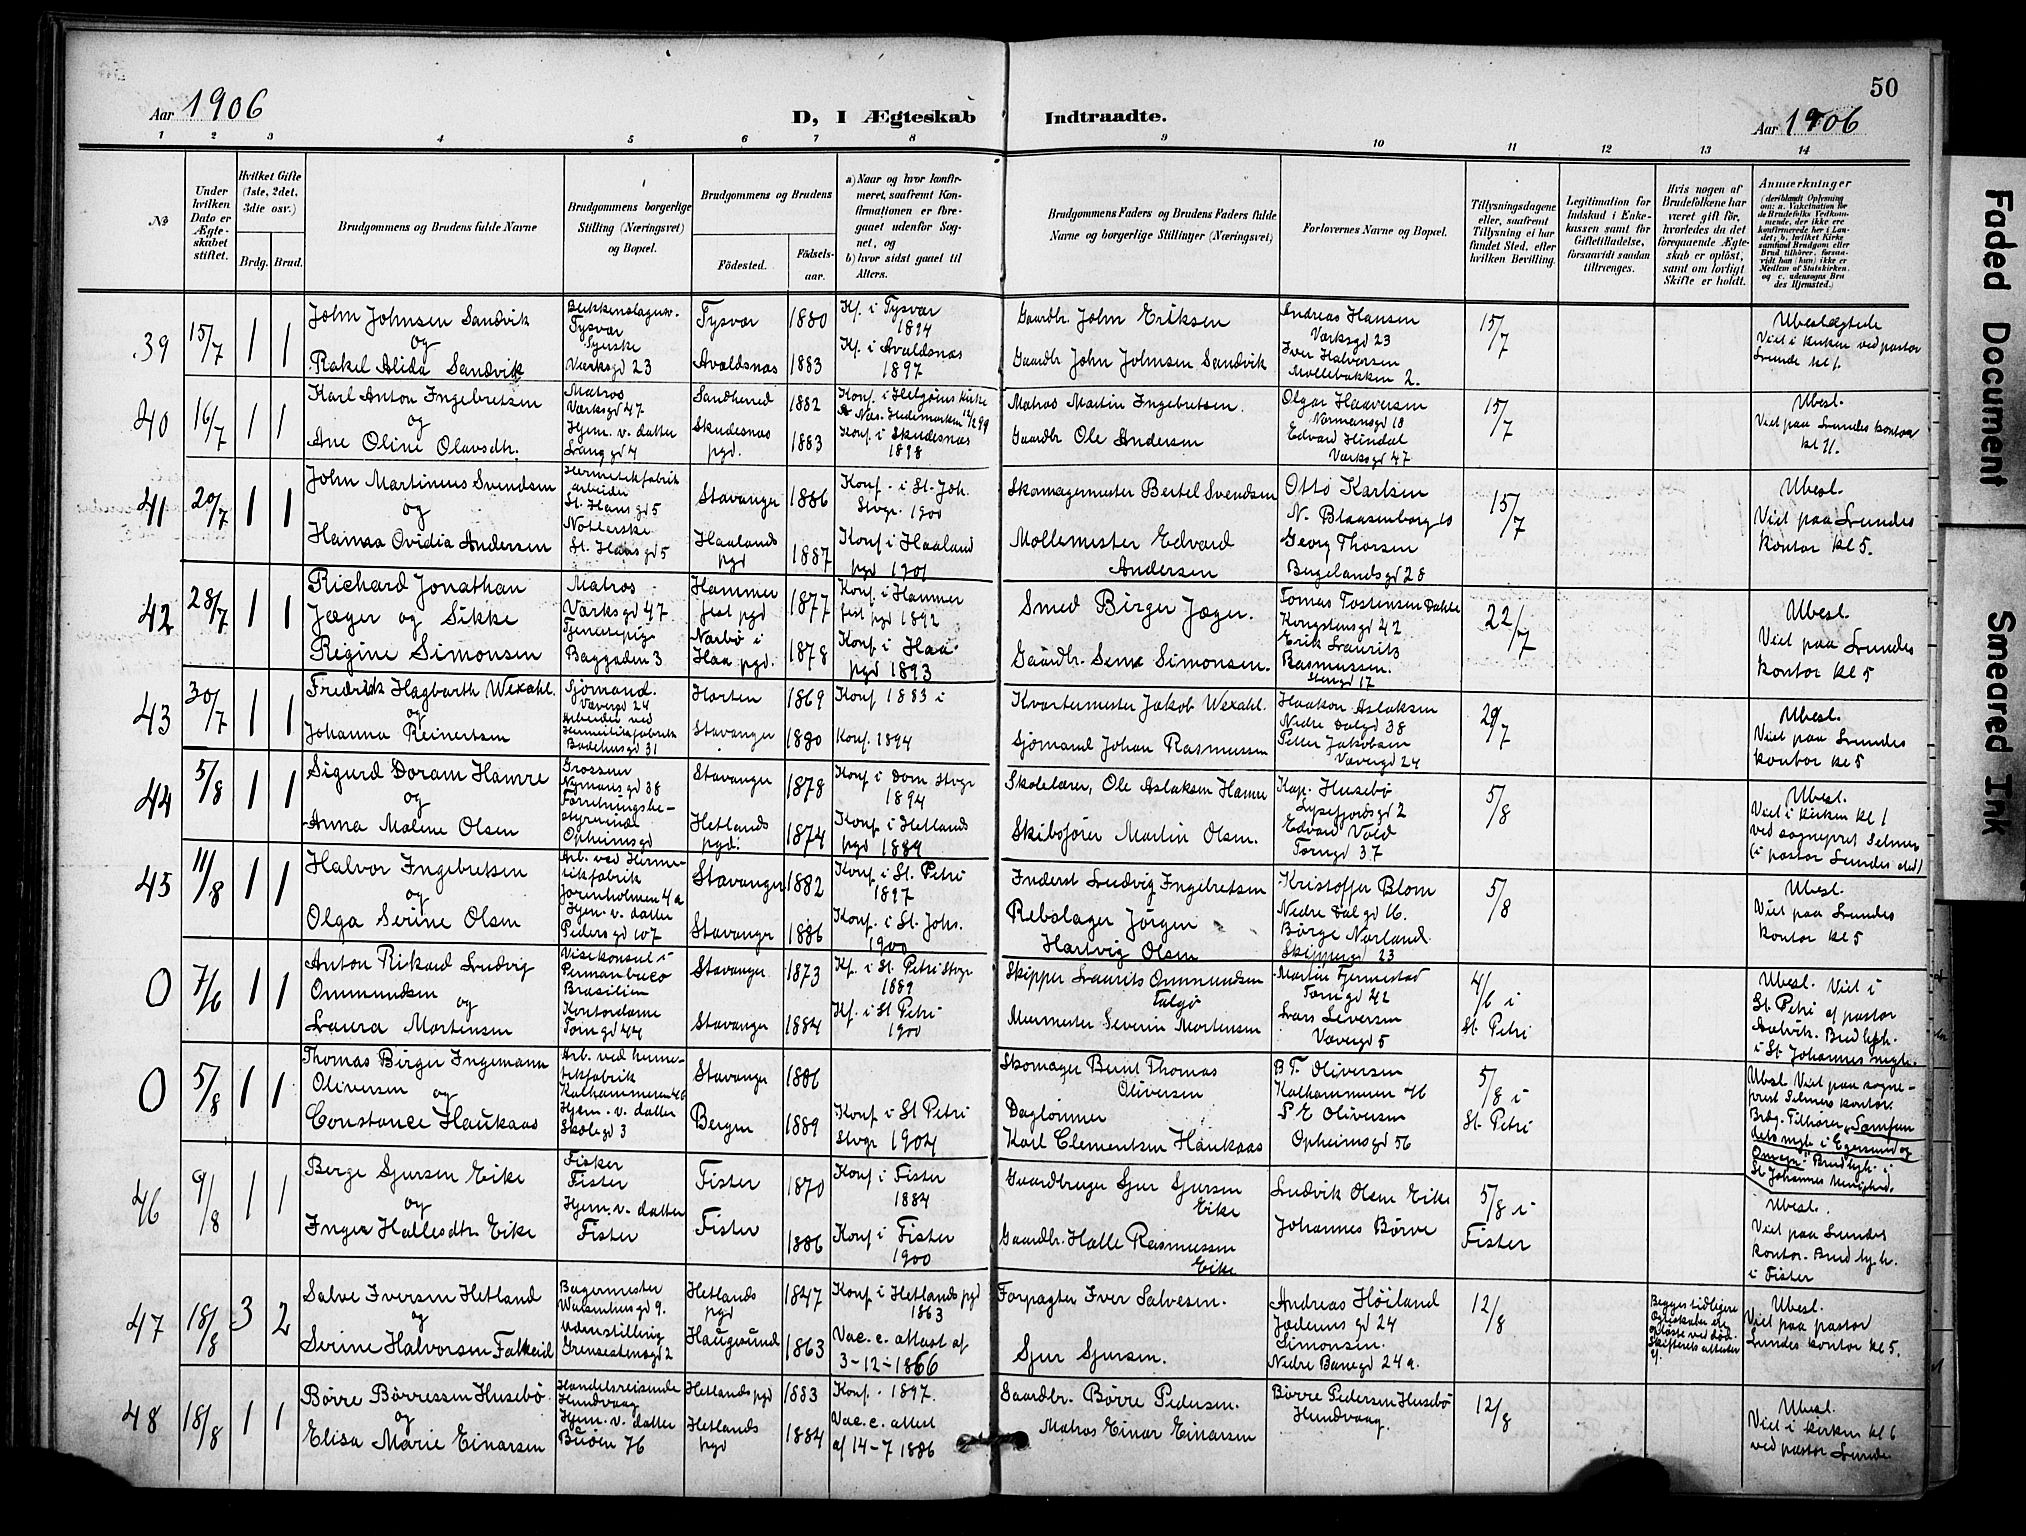 50
Aar 1906
D, I Ægteskab Indtraadte.
Aar 1906
1 2 3 4 5 6 7 8 9 10 11 12 13 14
No
Under hvilken Dato er Ægteskabet stiftet.
Hvilket Gifte (1ste, 2det, 3die osv.)
Brdg. Brud.
Brudgommens og Brudens fulde Navne
Brudgommens borgerlige Stilling (Næringsvei) og Bopæl.
Brudgommens og Brudens
Fødested.
Fødselsaar.
a) Naar og hvor konfirmeret, saafremt Konfirmationen er foregaaet udenfor Sognet, og
b) hvor sidst gaaet til Alters.
Brudgommens Faders og Brudens Faders fulde Navne og borgerlige Stillinger (Næringsvei)
Forlovernes Navne og Bopæl.
Tillysningsdagene eller, saafremt Tillysning ei har fundet Sted, efter hvilken Bevilling.
Legitimation for Indskud i Enkekassen samt for Giftetilladelse, forsaavidt saadan tiltrænges.
Hvis nogen af Brudefolkene har været gift før, hvorledes da det foregaaende Ægteskab er opløst, samt om lovligt Skifte er holdt.
Anmærkninger
39 15/7 1 1
John Johnsen Sandvik
og
Rakel Alida Sandvik
Blikkenslagersv.
Tysvær
Syerske
Værksgd 23
Tysvær 1880
Avaldsnæs 1883
Kf. i Tysvær
1894
Kf. i Avaldsnæs
1897
Gaardbr. John Eriksen
Gaardbr John Johnsen Sandvik
Andreas Hansen
Værksgd 23
Iver Halvorsen
Møllebakken 2.
15/7
Ubeslægtede
Viet i kirken ved pastor
Lunde kl 1.
40 16/7 1 1
Karl Anton Ingebretsen
og
Ane Oline Olavsdtr.
Matros
Værksgd 47
Hjem. v. datter
Langgd 4
Sandherred 1882
Skudesnæs pgd. 1883
Konf. i Helgøens Kirke
Næs. Hedemarken
Konf. i Skudesnæs
1898
Matros Martin Ingebretsen.
Gaardbr Ole Andersen
Olgar Haaversen
Normansgd 18
Edvard Hindal
Værksgd 47
15/7
Ubesl.
Viet paa Lundes kontor
kl 11.
41 20/7 1 1
John Martinius Svendsen
og
Hanna Ovidia Andersen
Hermetikfabrik
arbeider
St. Hansgd 5
St. Hansgd 5
Stavanger 1886
Haalands pgd 1887
Konf. i St. Joh.
Stvgr. 1900
Konf i Haaland
pgd 1901
Skomagermester Bertel Svendsen
Møllemester Edvard
Andersen
Otto Karlsen
N. Blaasenborg 10
Georg Thorsen
Bergelandsgd 28
15/7
Ubesl.
Viet paa Lundes
kontor kl 5.
42 28/7 1 1
Richard Jonathan
Jæger og Sikke
Regine Simonsen
Matros
Værksgd 47
Tjenestepige
Baggaden 3
Hammer
fest pgd 1877
Nærbø i
Haa pgd. 1878
Konf. i Hammer
fest pgd 1892
Konf. i Haa
pgd 1893
Smed Birger Jæger.
Gaardbr. Simonsen.
Tomas Tostensen Dahle
Kongstensgd 42
Erik Laurits
Rasmussen.
Stengd 17
22/7
Ubesl.
Viet paa Lundes
kontor kl 5
43 30/7 1 1
Fredrik Hagbarth Wexahl.
og
Johanna Reinertsen
Sjømand.
Vævergd 24
Arbeider ved
Hermetikfabrik
Badehusgd 31
Horten 1869
Stavanger 1880
Konf. 1883 i
Konf. 1894
Kvartermester Jakob Wexahl.
Sjømand Johan Rasmussen
Haakon Aslaksen
Nedre Dalgd 38
Peter Jakobsen
Vævergd 24
29/7
Ubesl.
Viet paa Lundes
kontor kl 5
44 5/8 1 1
Sigurd Doram Hamre
og
Anna Malene Olsen
Grosserer
Nymansgd 38
Forretningsbe-
styrerinde
Opheimsgd
Stavanger 1878
Hetlands pgd. 1874
Konf i Dom Stvgr
1894
Konf i Hetlands
pgd 1889
Skolelærer, Ole Aslaksen Hamre
Skibsfører Martin Olsen.
Kap. Husebø
Lysefjordsgd 2
Edvard Vold
Torngd 37
5/8
Ubesl.
Viet i kirken kl 1
ved sogneprst Selmer
(i pastor Lundes sted)
45 11/8 1 1
Halvor Ingebretsen
og
Olga Serine Olsen
Arb. ved Herme-
tikfabrik
Jorenholmen 4a
Hjem. v. datter
Pedersgd 107
Stavanger 1882
Stavanger 1886
Konf. i St. Petri
1897
Konf. i St. Johs.
1900
Inderst Ludvig Ingebretsen
Rebslager Jörgen
Hartvig Olsen
Kristoffer Blom
Nedre Dalgd 16.
Börge Norland
Skippergd 23
5/8
Ubesl.
Viet paa Lundes
kontor kl 5
0 7/6 1 1
Anton Rikard Ludvig
Ommundsen og
Laura Mortensen
Visekonsul i
Pernanbuco
Brasilien
Kontordame
Torngd 44
Stavanger 1873
Stavanger 1884
Kf. i St. Petri Stvgr
1889
Kf. i St Petri
1900
Skipper Laurits Ommundsen
Talgø
Murmester Severin Mortensen
Martin Fjermestad
Torngd 42
Lars Seversen
Vævergd 5
4/6 i
St. Petri
Ubesl. Viet i
St. Petri af pastor
i St. Johannes megh.
0 5/8 1 1
Thomas Birger Ingemann
Oliversen og
Constance Haukaas
Arb. ved herme-
tikfabrik
Kalhammeren 46
Hjem. v. datter
Skolegd 3
Stavanger 1886
Bergen 1889
Konf i St Petri
Stvgr 1904
Skomager Bernt Thomas
Oliversen
Daglønner
Karl Clementsen Haukaas
B T. Oliversen
Kalhammeren 46
P E Oliversen
Opheimsgd 56
5/8 i
St. Petri
Ubesl Viet paa sogne-
prest Selmers kontor.
Brdg. Tilhører Samfun
dets mgh i Egersund og
Omegn. Brud lyh. i
St Johannes Menighed.
46 9/8 1 1
Berge Gjursen Eike
og
Inger Hallesdtr Eike
Fisker
Fister
Hjem. v. datter
Fister
Fister 1870
Fister 1886
Konf i Fister
1884
Konf i Fister
1900
Gaardbruger Gjur Gjursen
Eike
Gaardbr. Halle Rasmussen
Eike
Ludvik Olsen Eike
Johannes Børve
5/8 i
Fister
Ubesl.
Viet paa Lundes
kontor. Brud lyh.
i Fister
47 18/8 3 2
Salve Iversen Hetland
og
Serine Halvorsen Falkeid
Bagermester
Vaisenhusgd 9.
Udenstilling
Grensestensgd 2
Hetlands pgd 1847
Haugesund 1863
Konf i Hetlands pgd
1863
Vac. c. attest af
3-12-1866
Forpagter Iver Salvesen.
Gjur Gjursen.
Andreas Höiland
Jæderens gd 24
Simonsen.
Nedre Banegd 24a.
12/8
Begges tidligere
Ægteskaber er
opløste ved død.
Ubesl.
Viet paa pastor
Lundes kontor kl 5.
48 18/8 1 1
Børre Børressen Husebø
og
Elisa Marie Einarsen
Handelsreisende
Hundvaag
Hjem. v. datter
Buøen 76
Hetlands pgd 1883
Hetlands pgd 1884
Konf. 1897.
Vac. c. attest
af 14-7 1886
Gaardbr. Børre Pedersen.
Matros Einar Einarsen
Børre Pedersen Husebø
Hundvaag.
12/8
Ubesl.
Viet i kirken kl 6
ved pastor Lunde
Faded Document
Smeared Ink